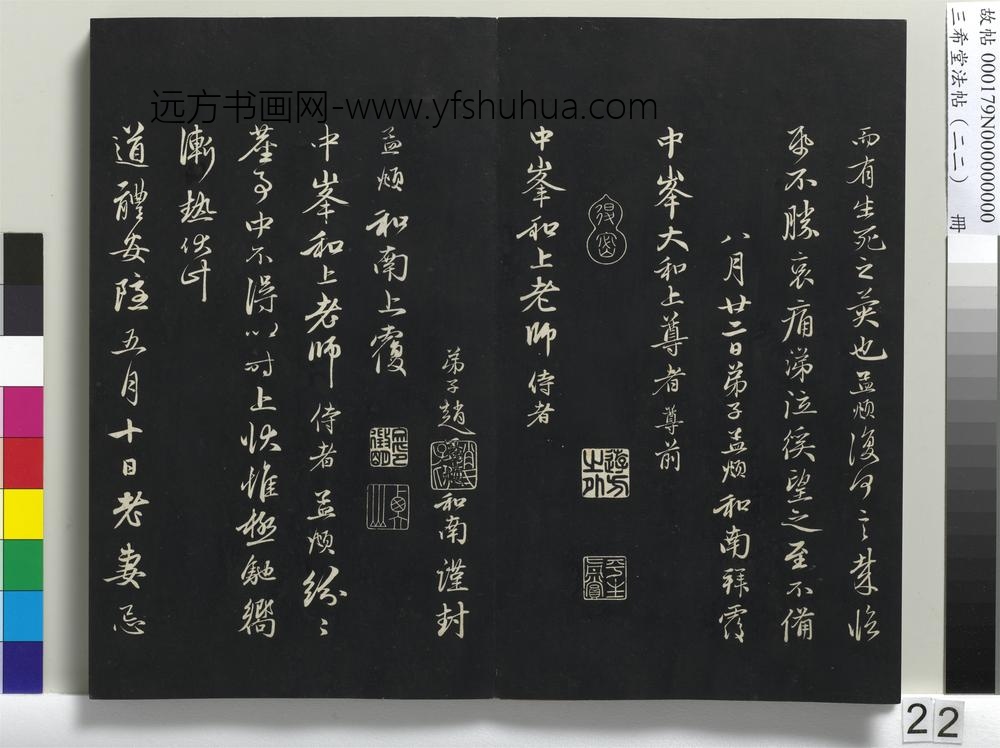 而有生死之异也孟頫复何言幸临
纸不胜哀痛涕泣徯望之至不備
八月廿二日弟子孟頫和南拜覆
中峯大和上尊者尊前
中峯和上老师侍者
弟子趙
和南謹封
孟頫和南上覆
中峯和上老师侍者孟頫紛〻
塵事中不得以时上状惟極馳嚮
漸热伏計
道體安隱五月十日老妻忌
远方书画网-www.yfshuhua.com
故帖 000179N000000000
三希堂法帖（二二） 册
22